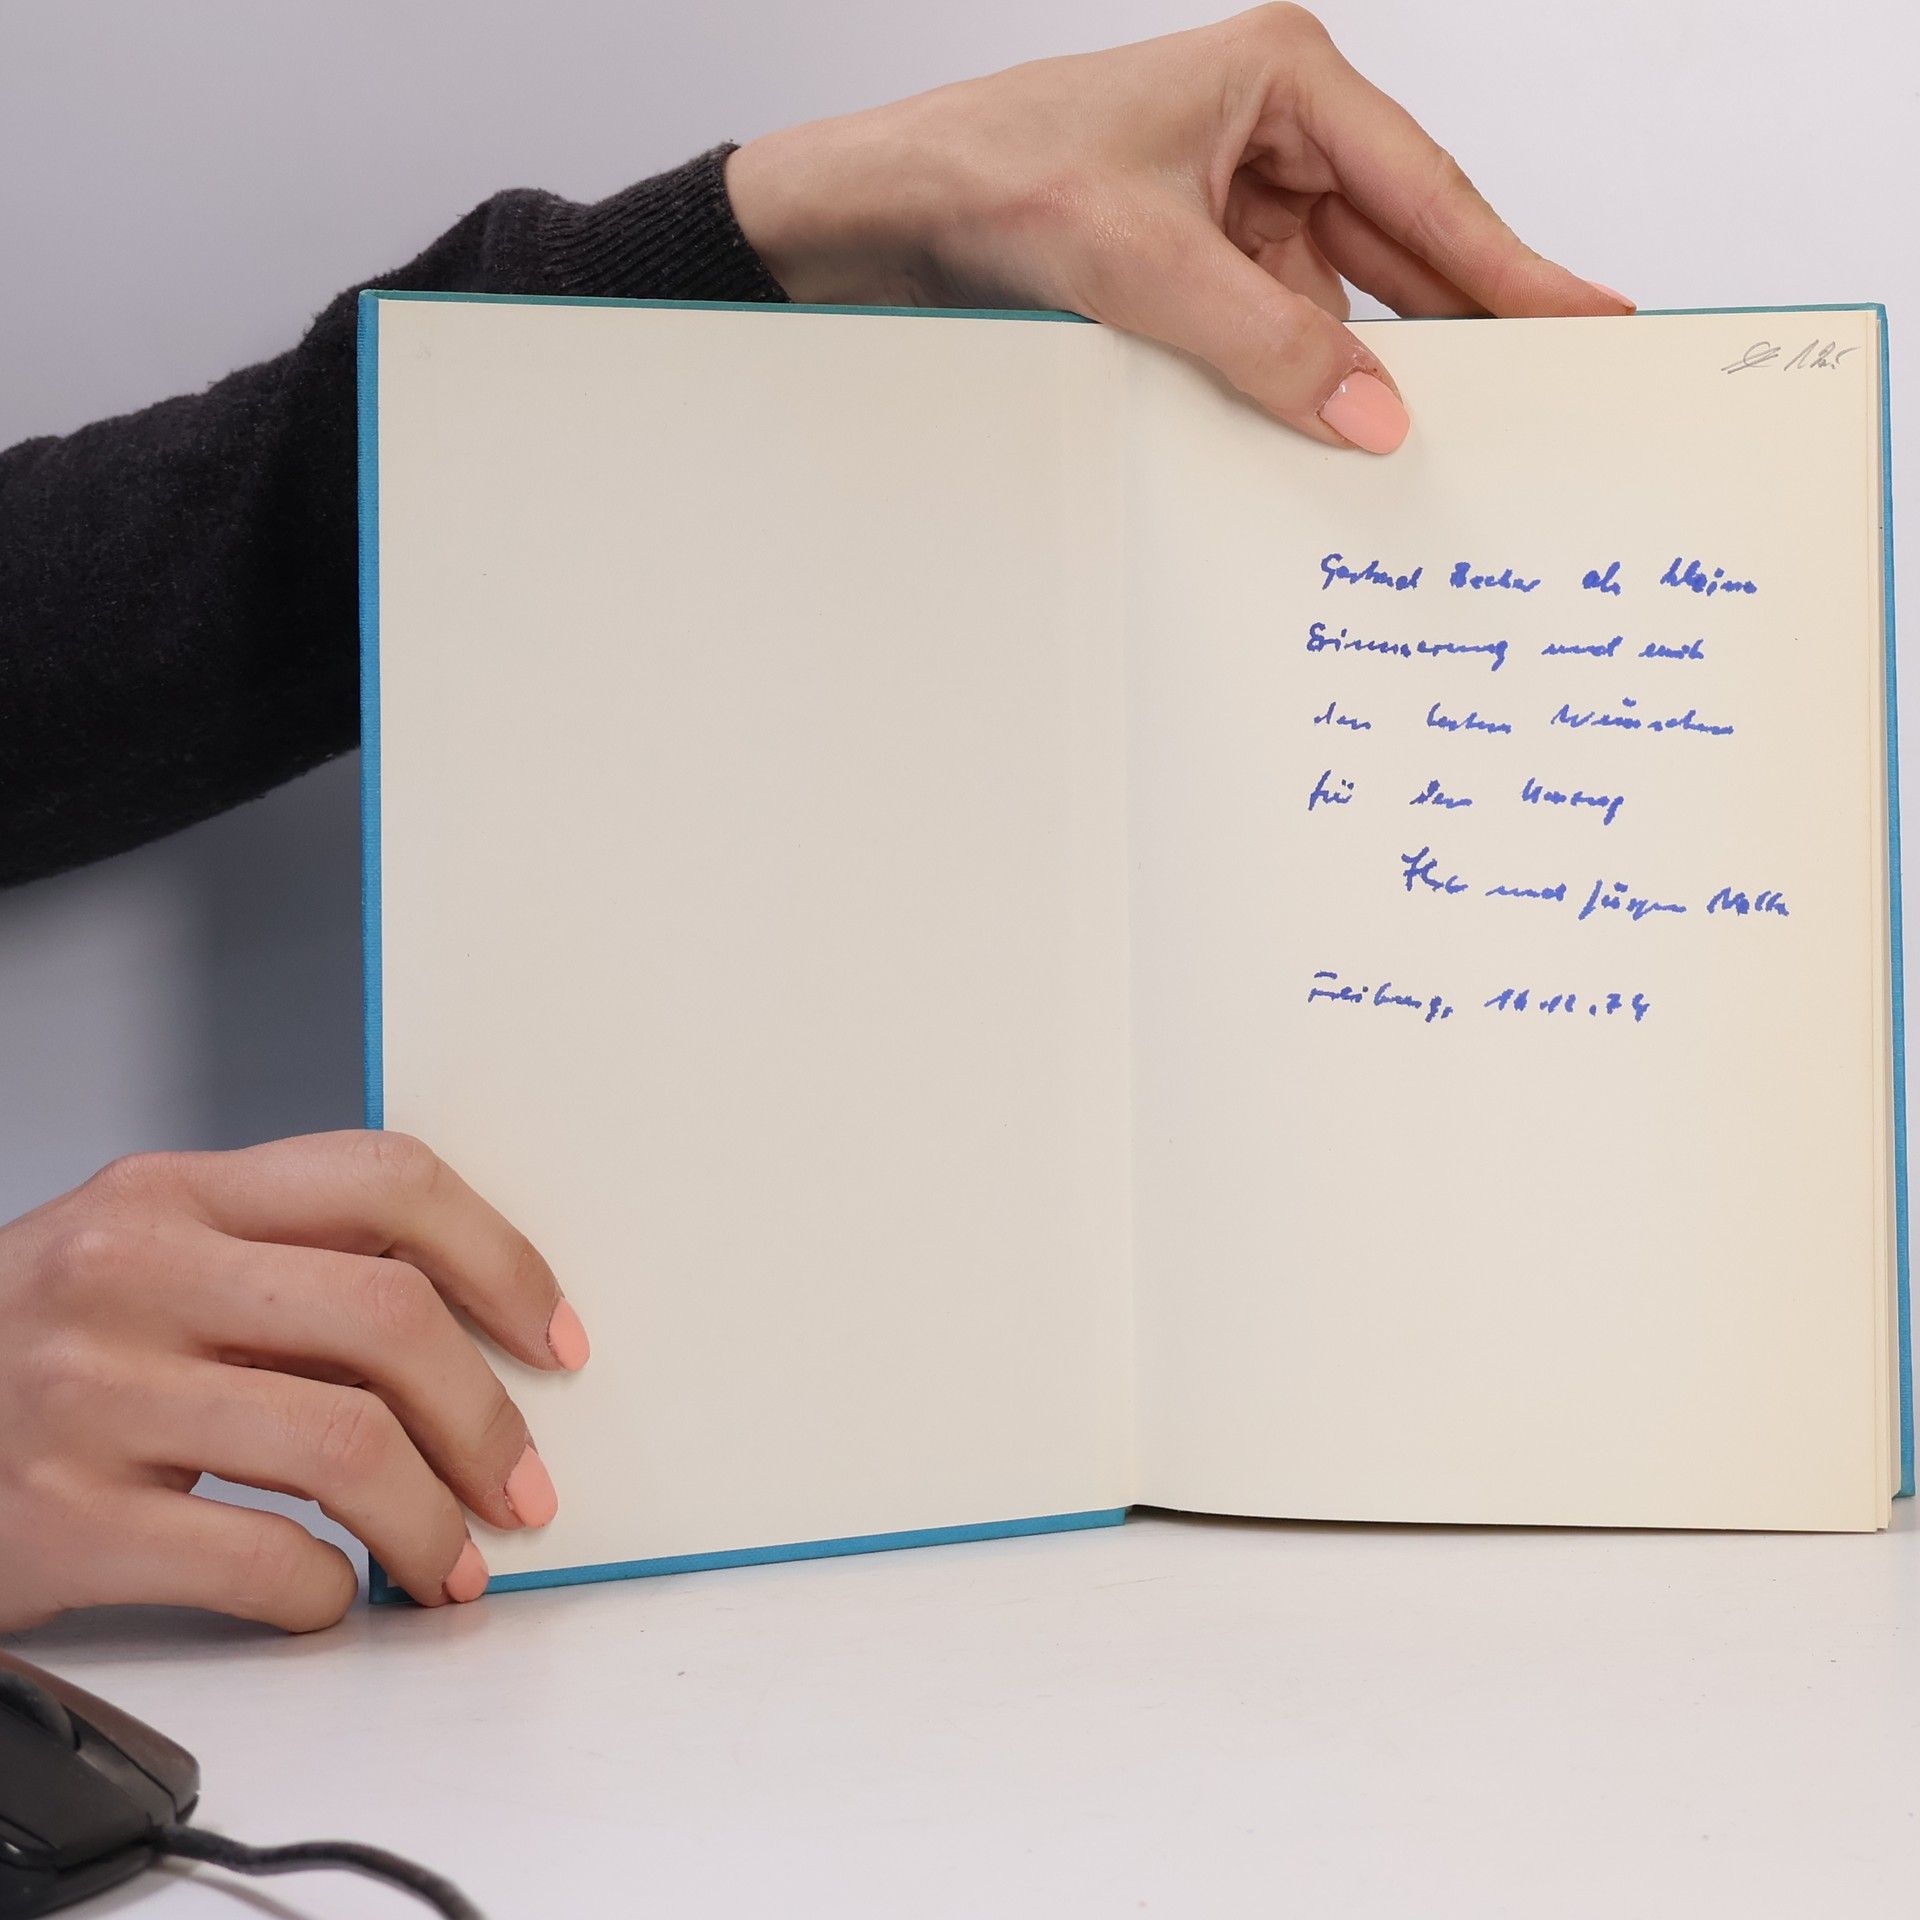 Gerhard Becker als kleine
Erinnerung und mit
den besten Wünschen
für den Umzug
und Jürgen
Freiburg, 16.12.74